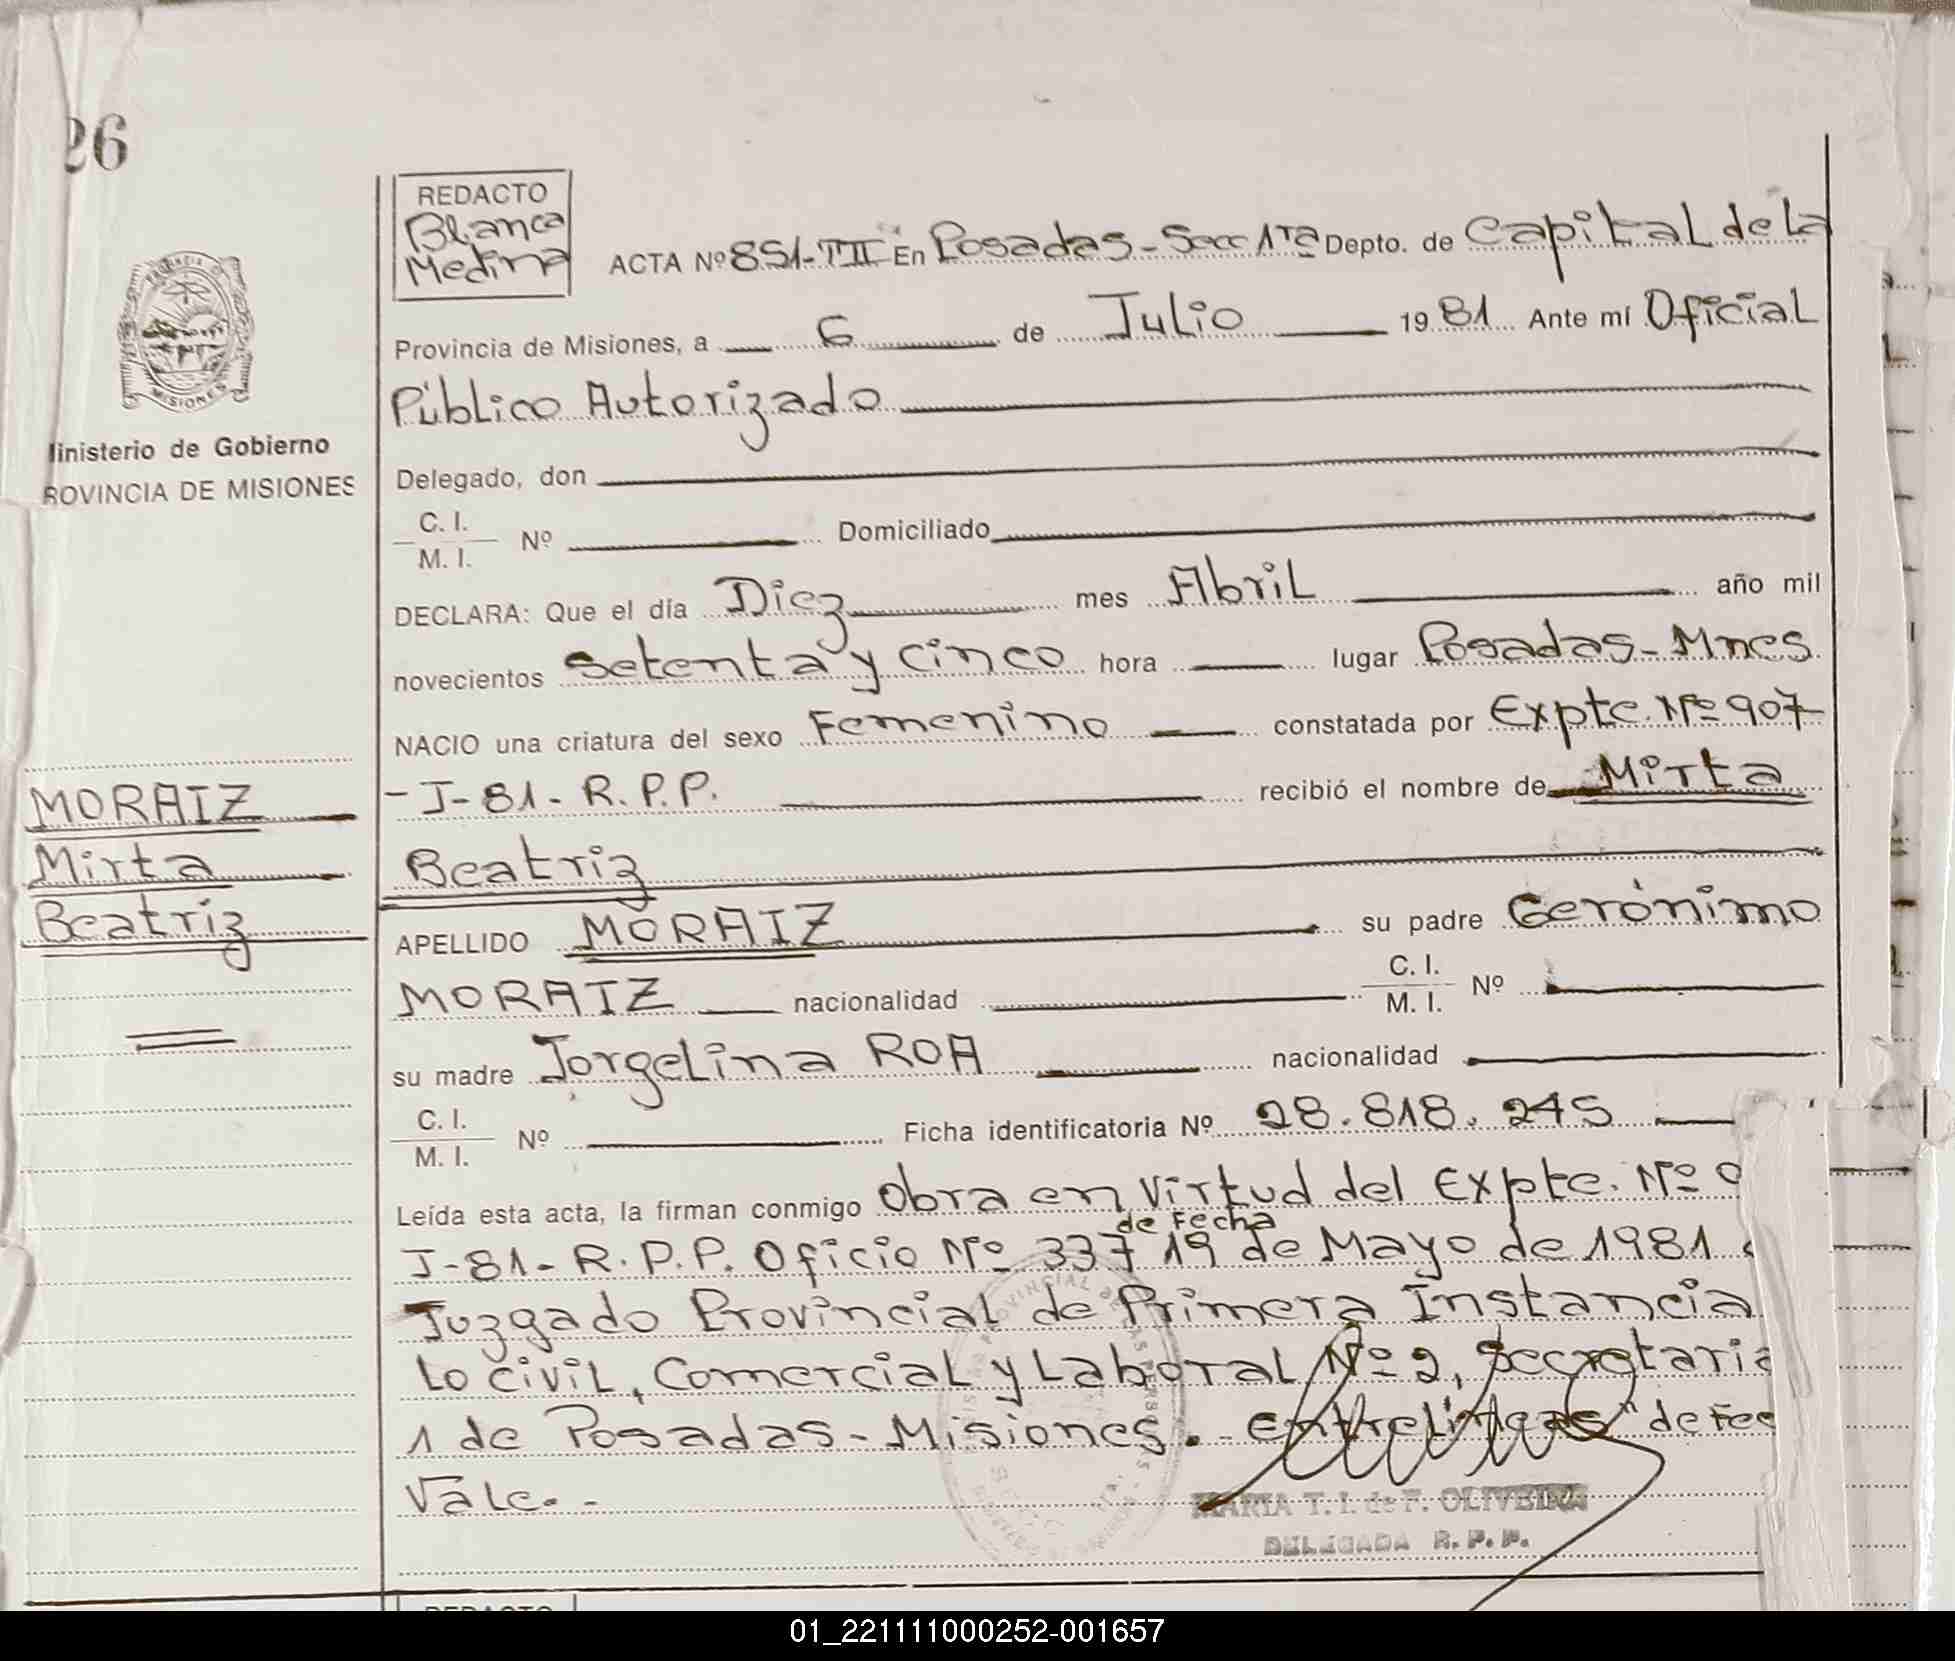 26
REDACTO
Blanca
Medina
ACTA Nº 851-TII En Posadas-Secc 1ra Depto. de Capital de la
Provincia de Misiones, a 6 de Julio 1981 Ante mí Oficial
Público Autorizado
Delegado, don
C. I.
M. I.
Nº Domiciliado
DECLARA: Que el día Diez mes Abril año mil
novecientos setenta y cinco hora lugar Posadas-Mnes
NACIO una criatura del sexo Femenino constatada por Expte. Nº 907
-J-81-R.P.P. recibió el nombre de Mirta
Beatriz
APELLIDO MORAIZ su padre Gerónimo
MORAIZ nacionalidad C. I.
M. I. Nº
su madre Jorgelina ROA nacionalidad
C. I.
M. I.
Nº Ficha identificatoria Nº 28.818.245
Leída esta acta, la firman conmigo Obra en Virtud del Expte. Nº
de Fecha
J-81-R.P.P. Oficio Nº 337 19 de Mayo de 1981
Juzgado Provincial de Primera Instancia
lo civil, Comercial y Laboral Nº 2, Secretaria
1 de Posadas-Misiones.- Entrelineas "de Fec
Vale.-
MARIA T. I. de F. OLIVEIRA
DELEGADA R. P. P.
PROVINCIA
MISIONES
inisterio de Gobierno
ROVINCIA DE MISIONES
MORAIZ
Mirta
Beatriz
REDACTO
01_221111000252-001657